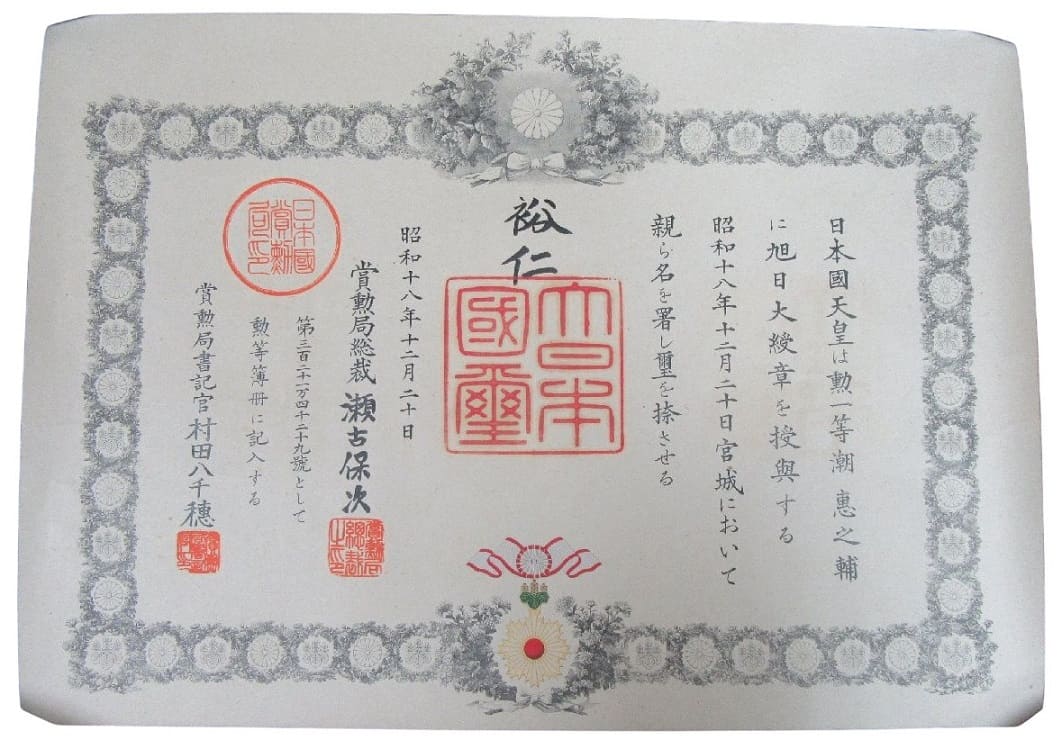 日本國天皇は勲一等潮 惠之輔
に旭日大綬章を授與する
昭和十八年十二月二十日宮城において
親ら名を署し璽を捺させる
裕仁
大日本國璽
昭和十八年十二月二十日
賞勲局総裁 瀬古保次
賞勲局總裁之印
第三百二十一万四千二十九號として
勲等簿冊に記入する
日本國賞勲局印
賞勲局書記官 村田八千穗